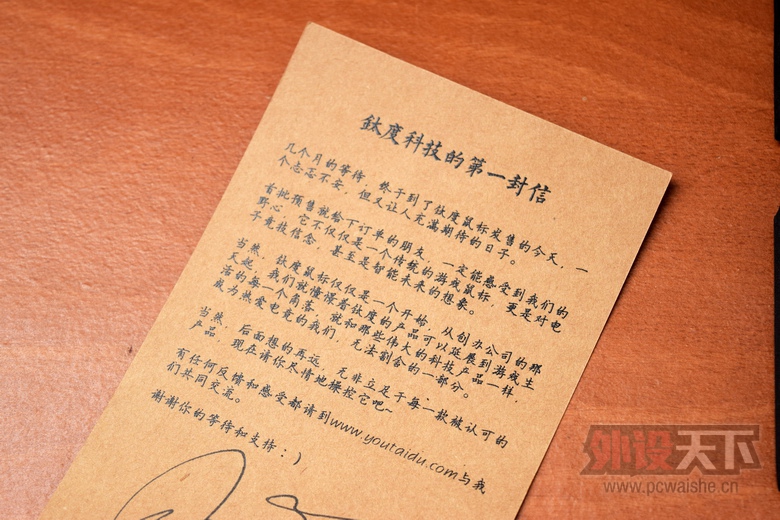 钛度科技的第一封信
几个月的等待，终于到了钛度鼠标发售的今天，一
个忐忑不安，但又让人充满期待的日子。
首批预售就给下订单的朋友，一定能感受到我们的
野心，它不仅仅是一个传统的游戏鼠标，更是对电
子竞技信念，甚至是智能未来的想象。
当然，钛度鼠标仅仅是一个开始，从创办公司的那
天起，我们就憧憬着钛度的产品可以延展到游戏生
活的每一个角落，就和那些伟大的科技产品一样，
成为热爱电竞的我们，无法割舍的一部分。
当然，后面想的再远，无非立足于每一款被认可的
产品，现在请你尽情地操控它吧~
有任何反馈和感受都请到www.youtaidu.com与我
们共同交流。
谢谢你的等待和支持：）
外设天下
www.pcwaishe.cn